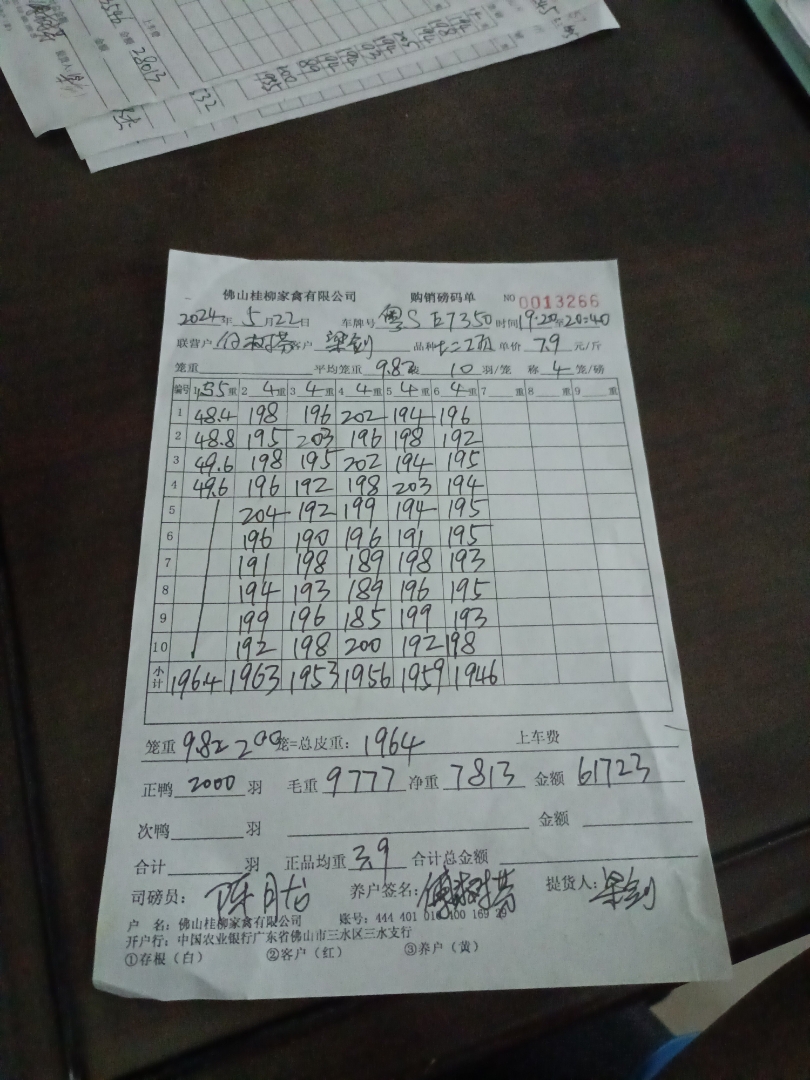 28013
532
佛山桂柳家禽有限公司 购销磅码单 NO 0013266
2024年5月22日 车牌号 粤S E7350 时间 19:20至20:40
联营户 客户 梁剑 品种 单价 7.9 元/斤
笼重 平均笼重 9.82 10 羽/笼 称 4 笼/磅
编号 1 重 2 4 重 3 4 重 4 4 重 5 4 重 6 4 重 7 重 8 重 9 重
1 48.4 198 196 202 194 196
2 48.8 195 203 196 198 192
3 49.6 198 195 202 194 195
4 49.6 196 192 198 203 194
5 204 192 199 194 195
6 196 190 196 191 195
7 191 198 189 198 193
8 194 193 189 196 195
9 199 196 185 199 193
10 192 198 200 192 198
小计 196.4 1963 1953 1956 1959 1946
笼重 9.82 200 笼=总皮重: 1964 上车费
正鸭 2000 羽 毛重 9777 净重 7813 金额 61723
次鸭 羽 金额
合计 羽 正品均重 3.9 合计总金额
司磅员: 陈月龙 养户签名: 提货人: 梁剑
户 名: 佛山桂柳家禽有限公司 账号: 444 401 010 400 169 29
开户行: 中国农业银行广东省佛山市三水区三水支行
①存根(白) ②客户(红) ③养户(黄)